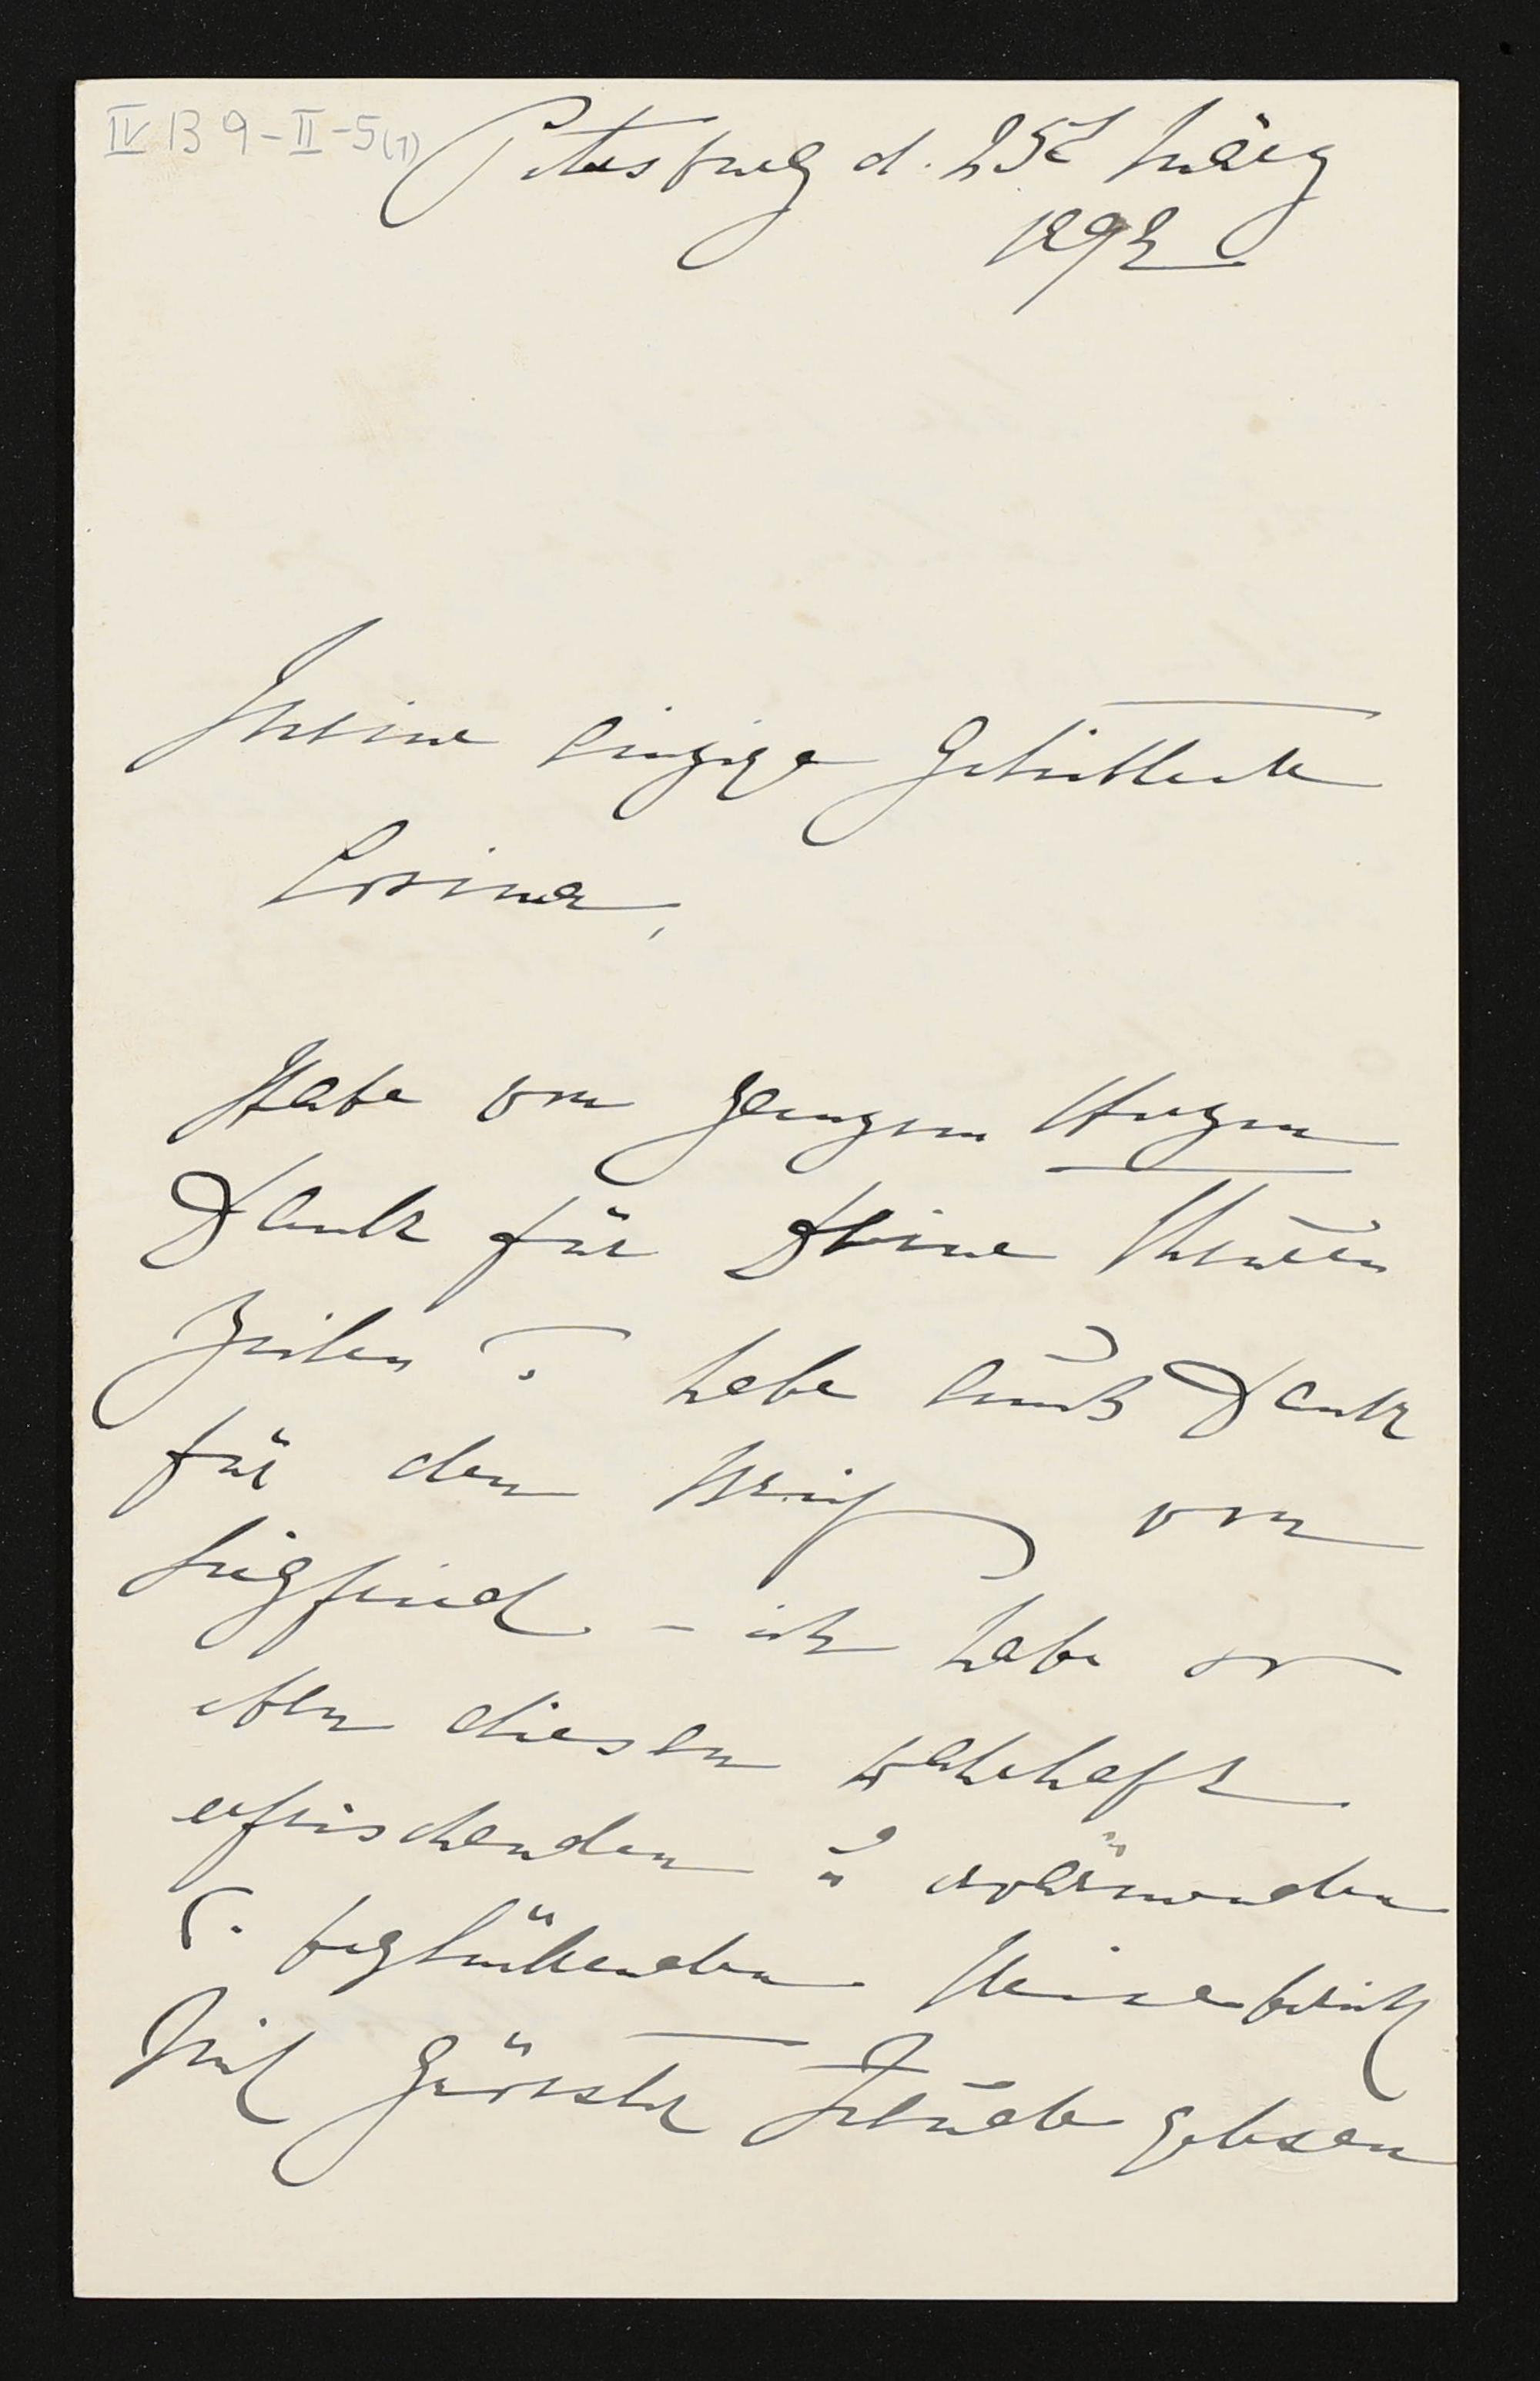 IV B 9-II-5(1)
Petersburg d. 25t März
1892
Meine einzige Geliebteste
Cosima,
Habe von ganzem Herzen
Dank für Deine Theuren
Zeilen u. habe auch Dank
für den Brief von
Siegfried - ich habe so
eben diesen wahrhaft
erfrischenden u erwärmenden
u. beglückenden Reisebericht
Mit Grösster Freude gelesen